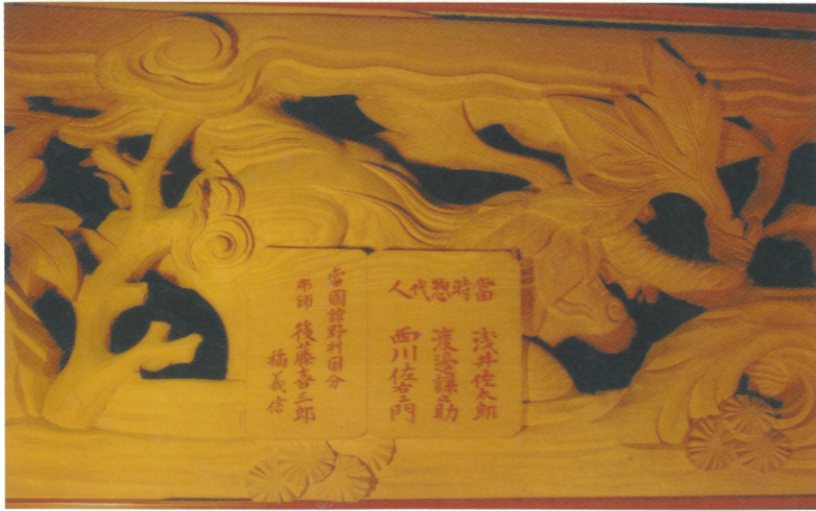 當時惣代人
浅井佐太郎
渡邊謙之助
西川佐右エ門
當國館野村国分
彫師 後藤喜三郎
橘義信